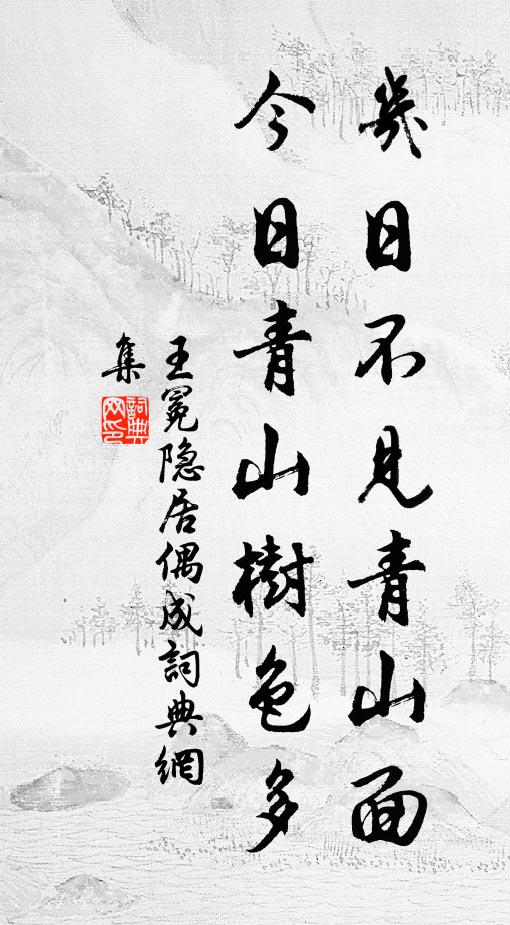 幾日不見青山面
今日青山樹色多
王冕隐居偶成詞典網
集
詞典網印